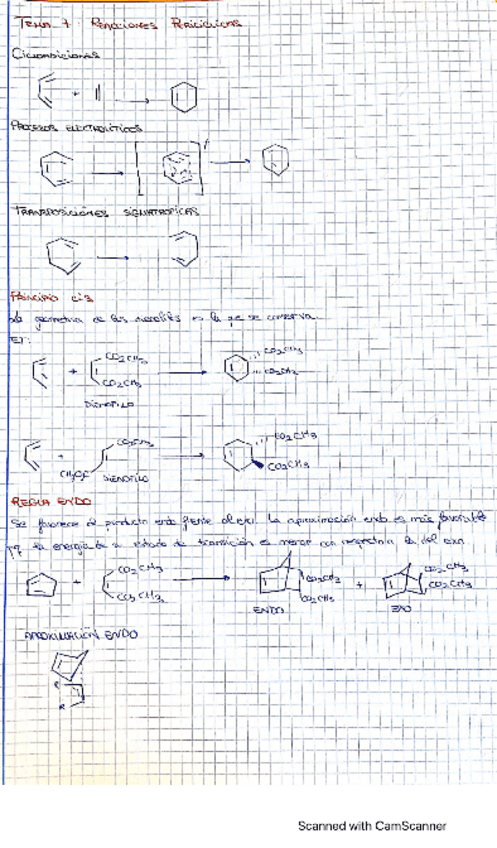 TEMA 7: REACCIONES PERICICLICAS
CICLOADICIONES
+
PROCESOS ELECTROCÍTICOS
TRANSPOSICIONES SIGMATROPICAS
PRINCIPIO CIS
La geometria de los es la que se conserva.
EJ:
CO2CH3
+
CO2CH3
CO2CH3
CO2CH3
DIENOFILO
CO2CH3
+
CO2CH3
CO2CH3
DIENOFILO
REGLA ENDO
Se favorece el producto endo frente al exo. La aproximación endo es más favorable
pq la energía de estado de transición es menor con respecto a la del exo.
CO2CH3
+
CO2CH3
CO2CH3
CO2CH3
+
CO2CH3
CO2CH3
ENDO
EXO
APROXIMACIÓN ENDO
R
R
Scanned with CamScanner